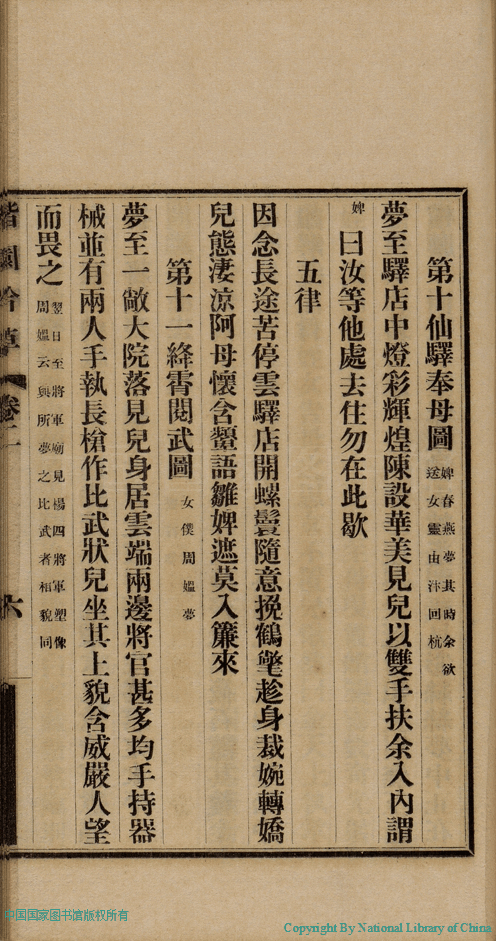 第十仙驛奉母圖 婢春燕夢其時余欲
送女靈由汴回杭
夢至驛店中燈彩輝煌陳設華美見兒以雙手扶余入內謂
婢曰汝等他處去住勿在此歇
五律
因念長途苦停雲驛店開螺鬟隨意挽鶴氅趁身裁婉轉嬌
兒態淒涼阿母懷含顰語雛婢遮莫入簾來
第十一絳霄閱武圖 女僕周媼夢
夢至一敞大院落見兒身居雲端兩邊將官甚多均手持器
械並有兩人手執長槍作比武狀兒坐其上貌含威嚴人望
而畏之 翌日至將軍廟見楊四將軍塑像
周媼云與所夢之比武者相貌同
卷二
六
中国国家图书馆版权所有
Copyright By National Library of China